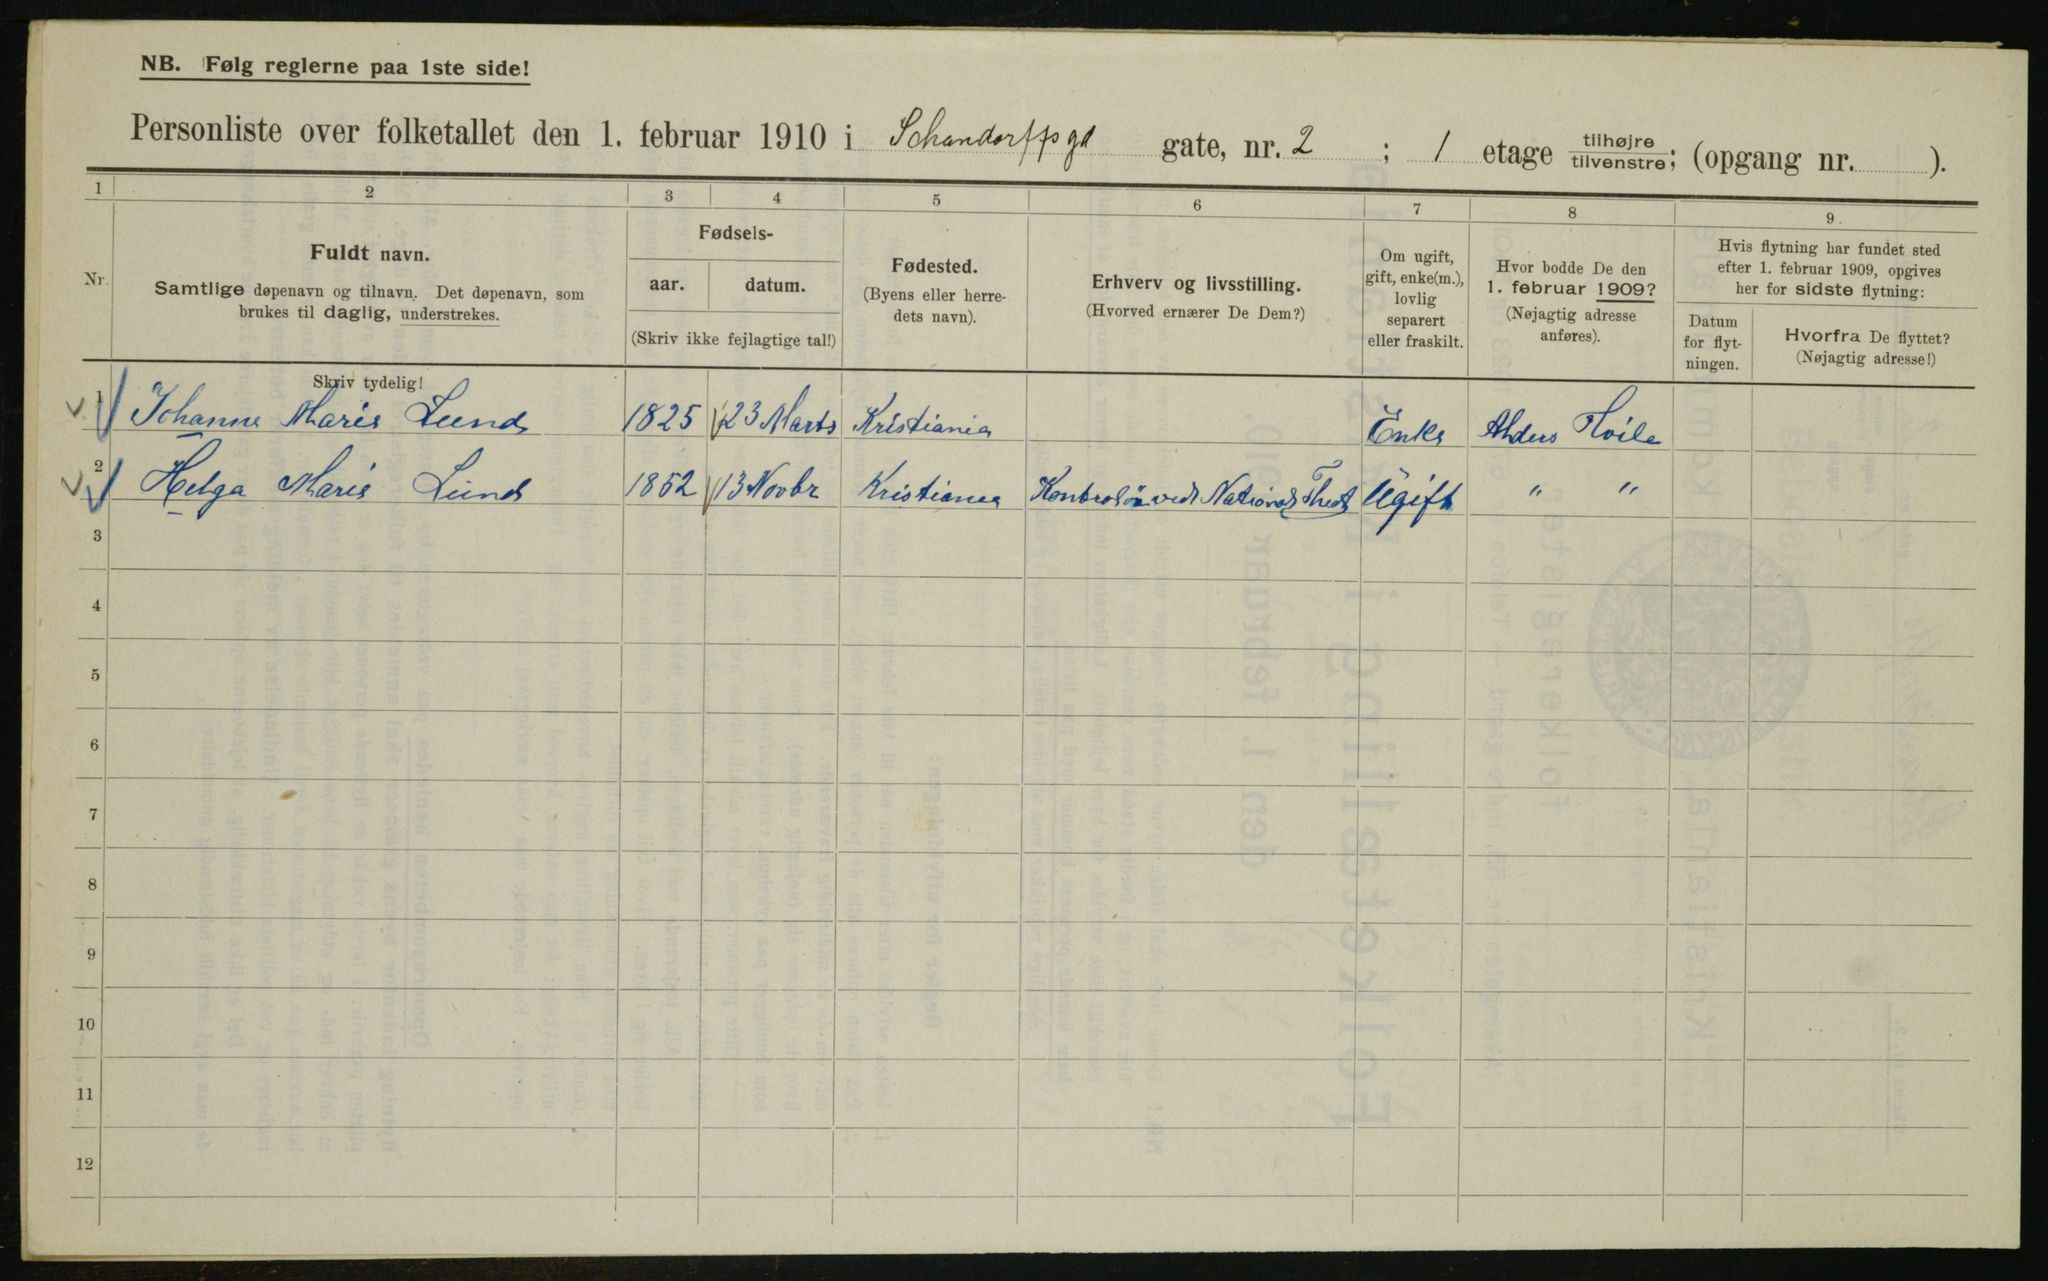 NB. Følg reglerne paa 1ste side!
Personliste over folketallet den 1. februar 1910 i Schandorffsgd gate, nr. 2 ; 1 etage tilhøjre tilvenstre; (opgang nr. ).
1 2 3 4 5 6 7 8 9
Nr.
Fuldt navn.
Samtlige døpenavn og tilnavn. Det døpenavn, som
brukes til daglig, understrekes.
Skriv tydelig!
Fødsels-
aar. datum.
(Skriv ikke fejlagtige tal!)
Fødested.
(Byens eller herre-
dets navn).
Erhverv og livsstilling.
(Hvorved ernærer De Dem?)
Om ugift,
gift, enke(m.),
lovlig
separert
eller fraskilt.
Hvor bodde De den
1. februar 1909?
(Nøjagtig adresse
anføres).
Hvis flytning har fundet sted
efter 1. februar 1909, opgives
her for sidste flytning:
Datum
for flyt-
ningen.
Hvorfra De flyttet?
(Nøjagtig adresse!)
1 Johanne Marie Lund 1825 23 Marts Kristiania Enke Alders Hvile
2 Helga Marie Lund 1852 13 Novbr Kristiania Kontrolør ved National Theat Ugift " "
3
4
5
6
7
8
9
10
11
12